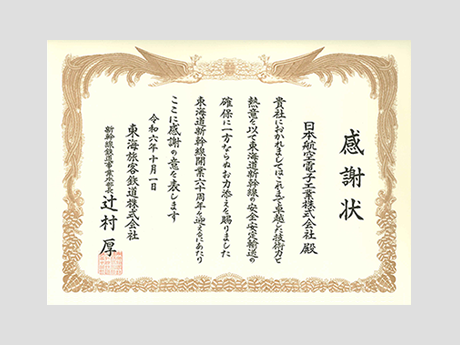 感謝状
日本航空電子工業株式会社 殿
貴社におかれましてはこれまで卓越した技術力と
熱意を以て東海道新幹線の安全安定輸送の
確保に一方ならぬお力添えを賜りました
東海道新幹線開業六十周年を迎えるにあたり
ここに感謝の意を表します
令和六年十月一日
東海旅客鉄道株式会社
新幹線鉄道事業本部長 辻村 厚